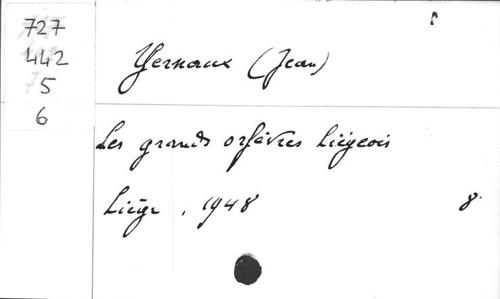 727
442
5
6
Yernaux (Jean)
Les grands orfèvres liégeois
Liége, 1948 8.